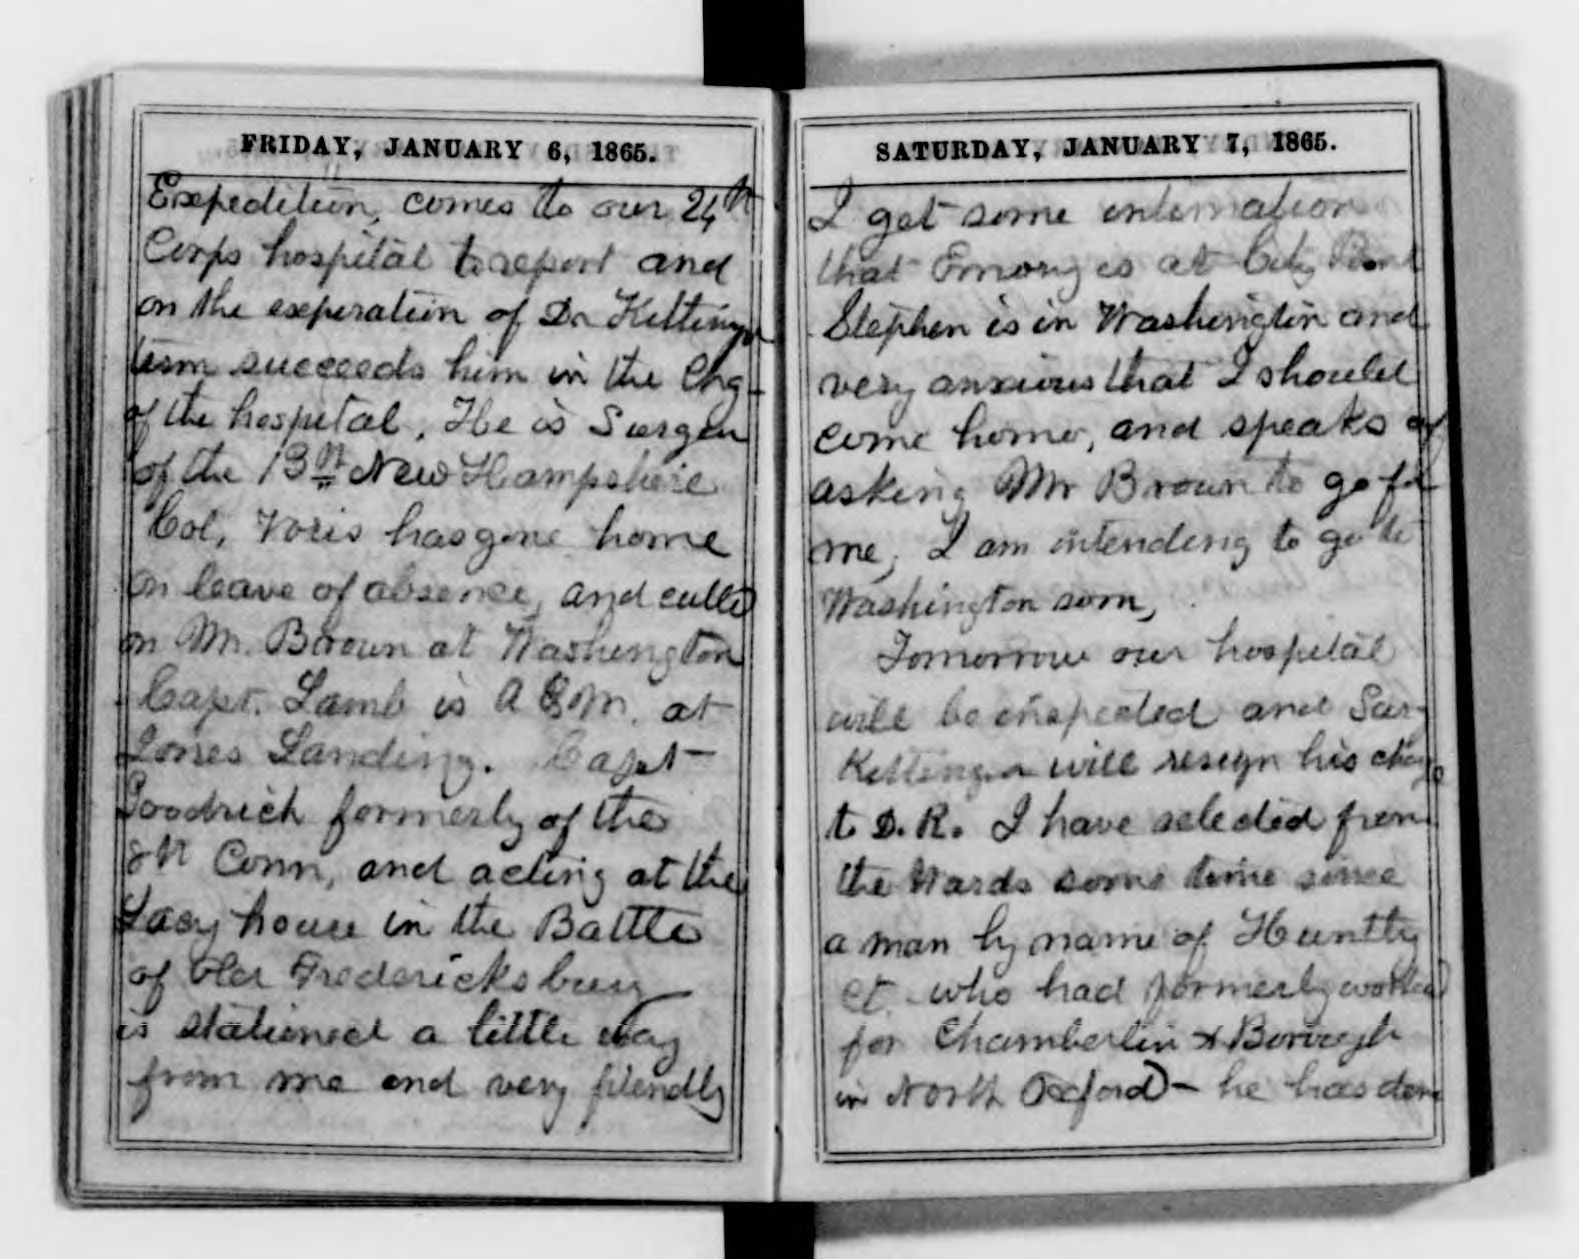 FRIDAY, JANUARY 6, 1865.
Expedition, comes to our 24th
Corps hospital to report and
on the experation of Dr Kittinger
term succeeds him in the Chg
of the hospital, He is Surgeon
of the 13th New Hampshire
Col, Voris has gone home
on leave of absence, and calld
on Mr. Brown at Washington
Capt. Lamb is A Q M. at
Jones Landing. Capt
Goodrich formerly of the
8th Conn, and acting at the
Lacy house in the Battle
of old Fredericksburg
is stationed a little way
from me and very friendly
SATURDAY, JANUARY 7, 1865.
I get some intimation
that Emory is at City Point
Stephen is in Washington and
very anxious that I should
come home, and speaks of
asking Mr Brown to go for
me, I am intending to go to
Washington soon,
Tomorrow our hospital
will be inspected and Sur
Kittinger will resign his charge
to D. R. I have selected from
the Wards some time since
a man by name of Huntly
Ct. who had formerly worked
for Chamberlin & Borough
in North Oxford - he has done